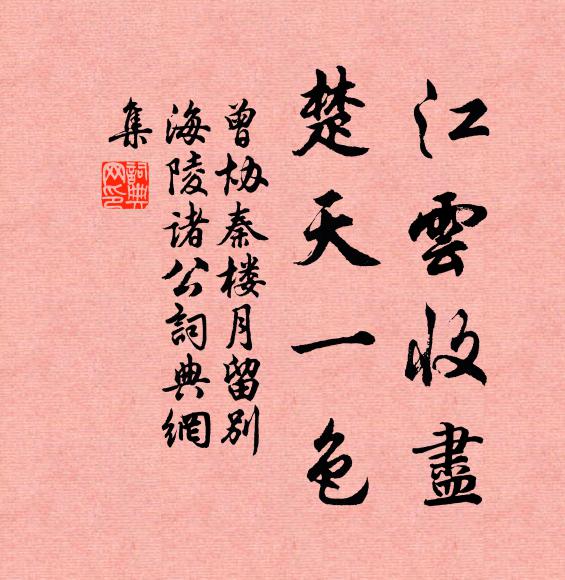 江雲收盡
楚天一色
曾协秦楼月留别
海陵诸公詞典網
集
詞典
网印